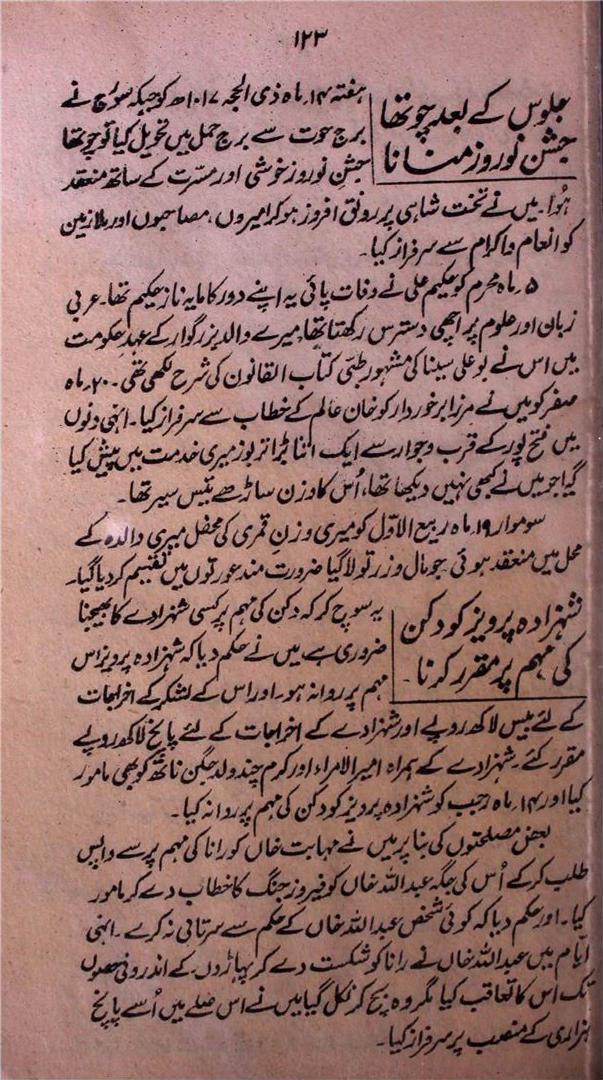 ۱۲۳
جلوس کے بعد چوتھا
جشن نوروز منانا
ہفتہ ۱۴؍ ماہ ذی الحجہ ۱۰۱۷ھ کو جبکہ سورج نے
برج حوت سے برج حمل میں تحویل کیا تو چوتھا
جشنِ نوروز خوشی اور مسرت کے ساتھ منعقد
ہُوا۔ میں نے تخت شاہی پر رونق افروز ہو کر امیروں، مصاحبوں اور ملازمین
کو انعام و اکرام سے سرفراز کیا۔
۵؍ ماہ محرم کو حکیم علی نے وفات پائی یہ اپنے دور کا مایہ ناز حکیم تھا۔ عربی
زبان اور علوم پر اچھی دسترس رکھتا تھا، میرے والد بزرگوار کے عہد حکومت
میں اس نے بوعلی سینا کی مشہور طبّی کتاب القانون کی شرح لکھی تھی۔ ۲۰؍ ماہ
صفر کو میں نے مرزا برخوردار کو خان عالم کے خطاب سے سرفراز کیا۔ انہی دنوں
میں فتح پور کے قرب و جوار سے ایک اتنا بڑا تربوز میری خدمت میں پیش کیا
گیا جو میں نے کبھی نہیں دیکھا تھا، اُس کا وزن ساڑھے تیس سیر تھا۔
سوموار ۱۹؍ ماہ ربیع الاوّل کو میری وزنِ قمری کی محفل میری والدہ کے
محل میں منعقد ہوئی، جو مال و زر تولا گیا ضرورت مند عورتوں میں تقسیم کر دیا گیا۔
شہزادہ پرویز کو دکن
کی مہم پر مقرر کرنا۔
یہ سوچ کر کہ دکن کی مہم پر کسی شہزادے کا بھیجنا
ضروری ہے میں نے حکم دیا کہ شہزادہ پرویز اس
مہم پر روانہ ہو۔ اور اس کے لشکر کے اخراجات
کے لئے بیس لاکھ روپے اور شہزادے کے اخراجات کے لئے پانچ لاکھ روپے
مقرر کئے۔ شہزادے کے ہمراہ امیر الامراء اور کرم چند ولد جگن ناتھ کو بھی مامور
کیا اور ۱۴؍ ماہ رجب کو شہزادہ پرویز کو دکن کی مہم پر روانہ کیا۔
بعض مصلحتوں کی بنا پر میں نے مہابت خاں کو رانا کی مہم پر سے واپس
طلب کر کے اُس کی جگہ عبداللہ خاں کو فیروز جنگ کا خطاب دے کر مامور
کیا۔ اور حکم دیا کہ کوئی شخص عبداللہ خاں کے حکم سے سرتابی نہ کرے۔ انہی
ایّام میں عبداللہ خاں نے رانا کو شکست دے کر پہاڑوں کے اندرونی حصوں
تک اس کا تعاقب کیا مگر وہ بچ کر نکل گیا میں نے اس صلے میں اُسے پانچ
ہزاری کے منصب پر سرفراز کیا۔